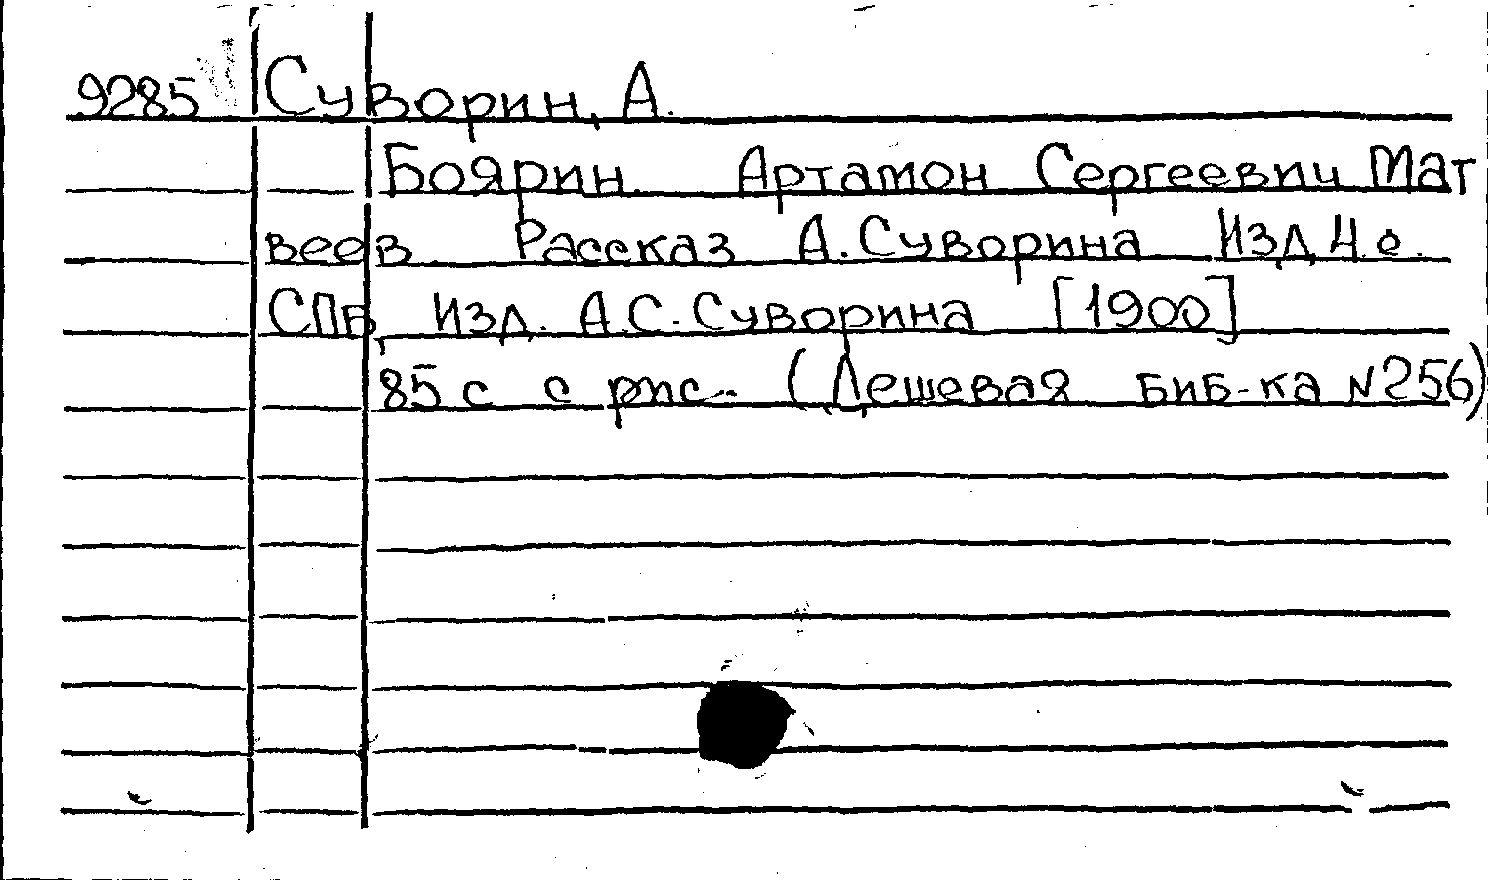 9285 Суворин, А.
Боярин Артамон Сергеевич Мат
веев. Рассказ А.Суворина Изд. 4.е.
СПб, Изд. А.С. Суворина [1900]
85 с с рис. (Дешевая биб-ка N256)